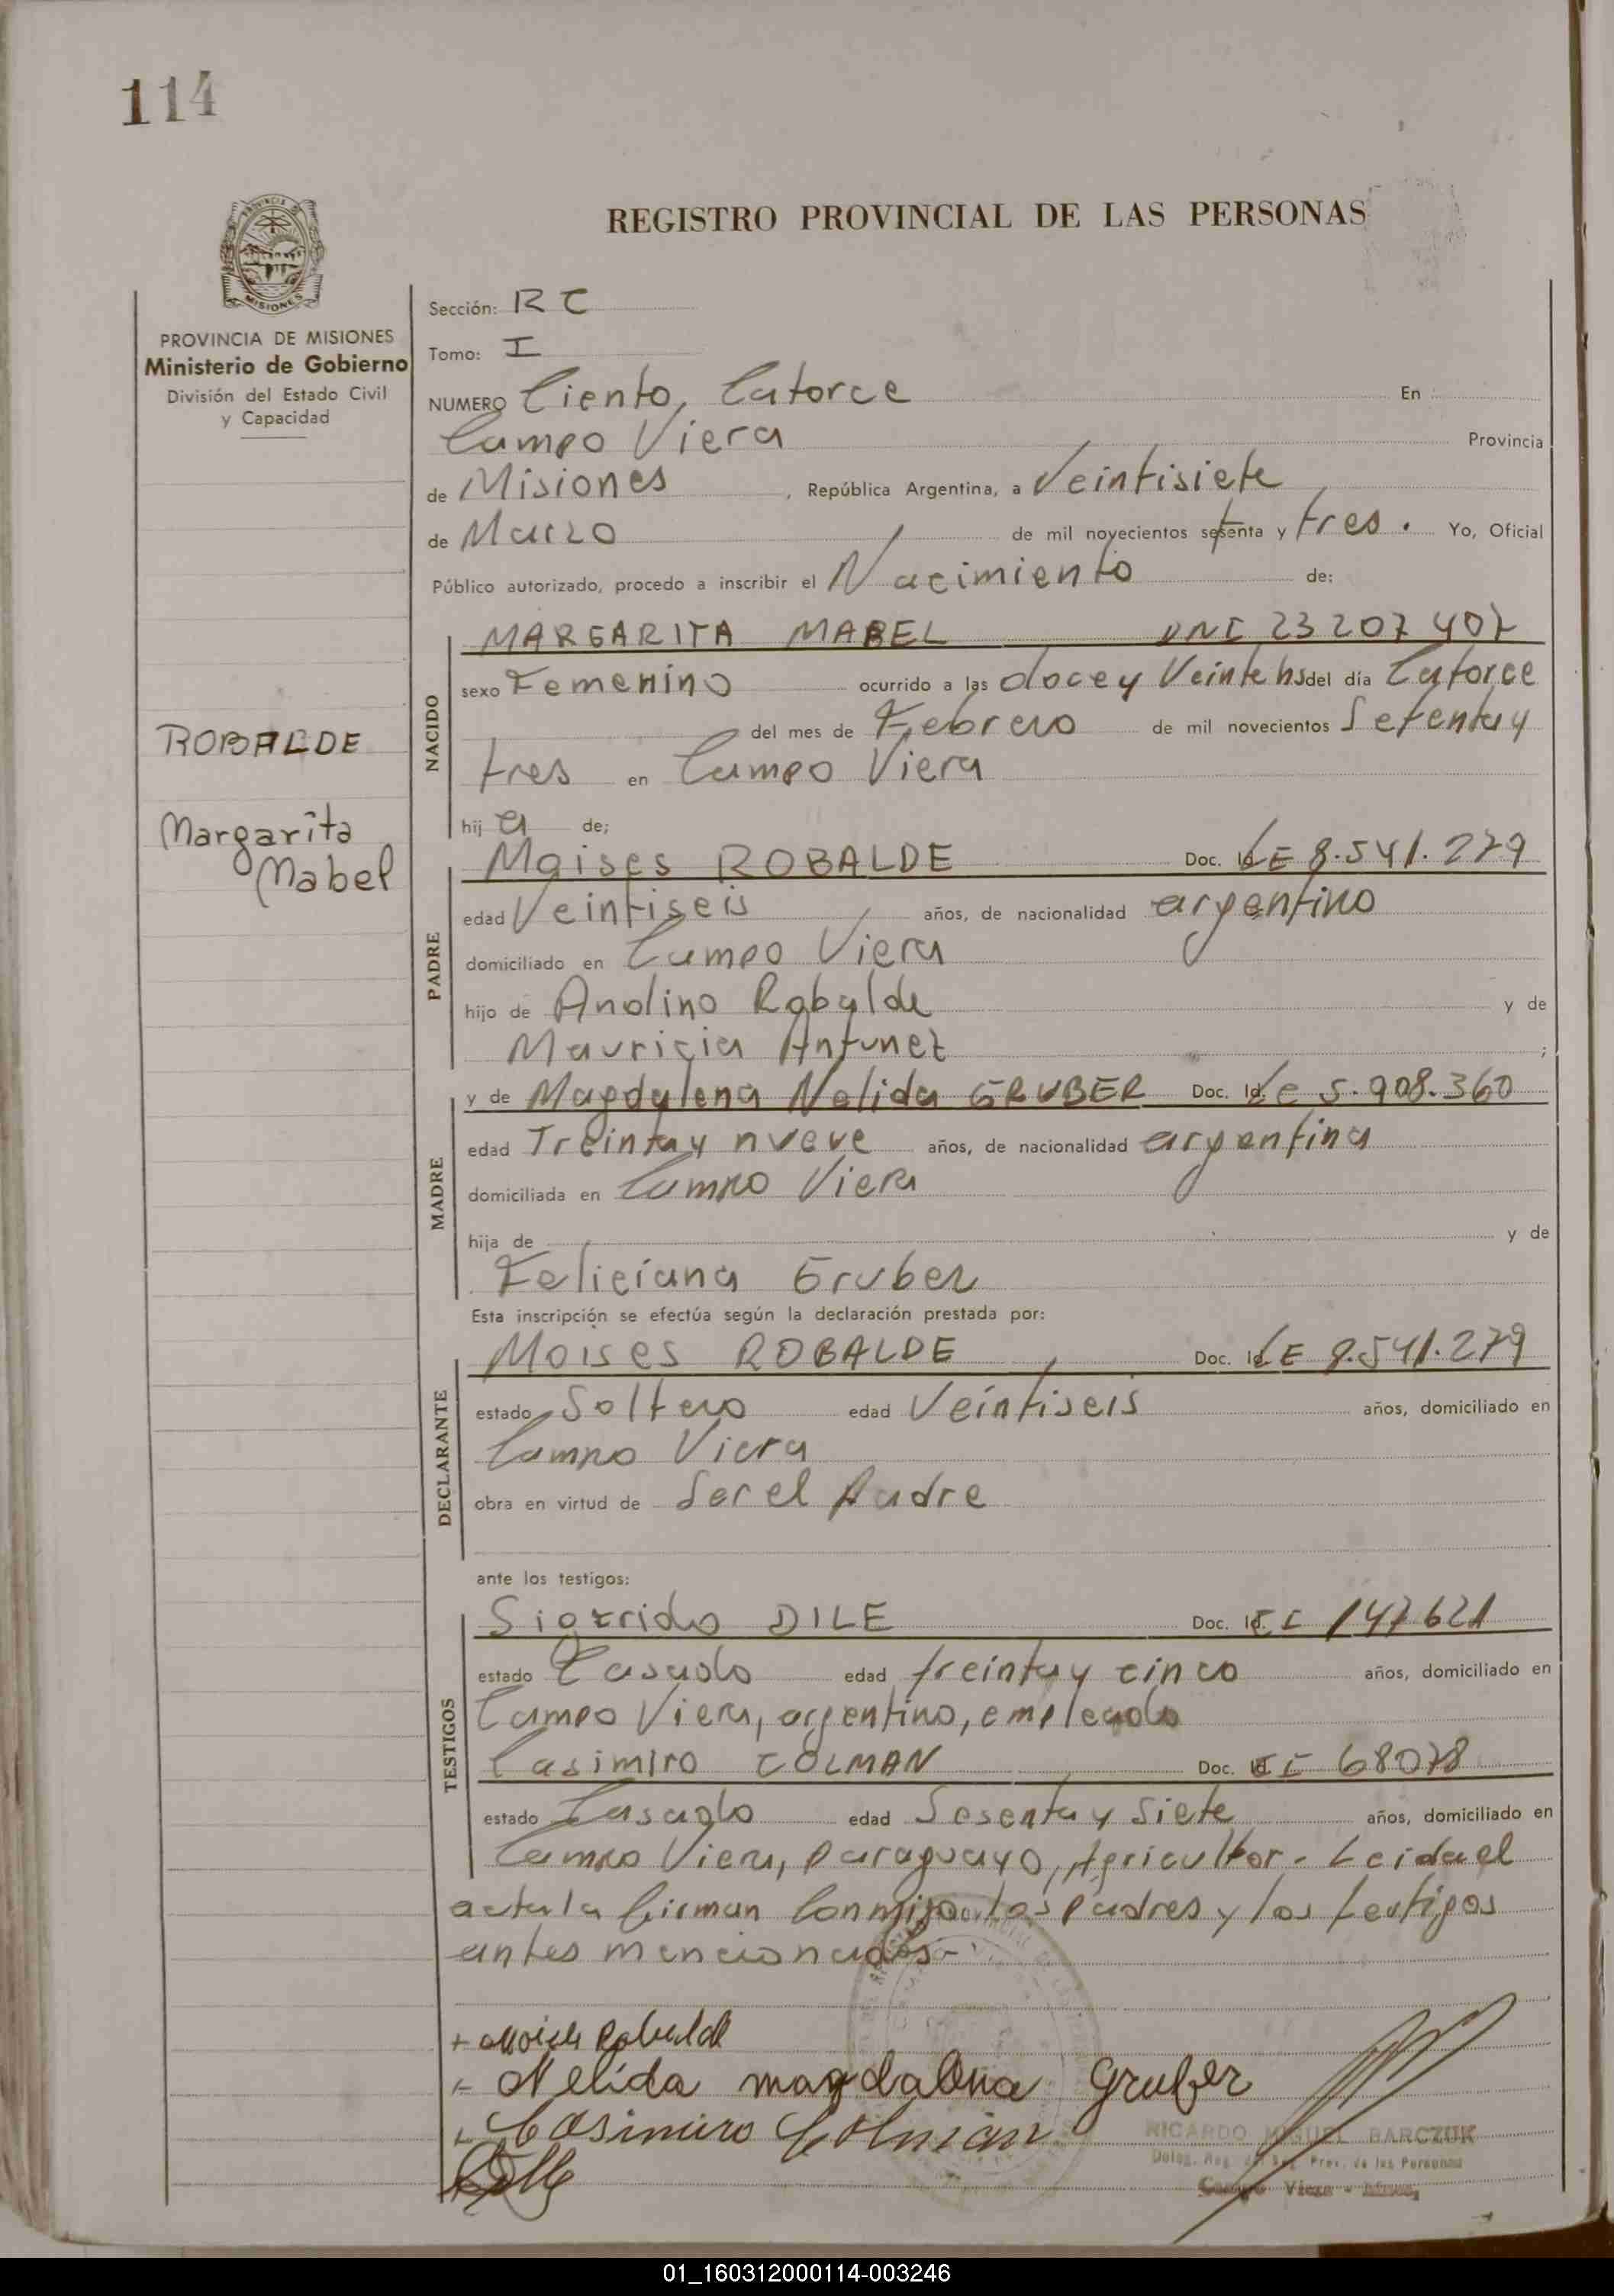 114
REGISTRO PROVINCIAL DE LAS PERSONAS
PROVINCIA DE MISIONES
Ministerio de Gobierno
División del Estado Civil
y Capacidad
ROBALDE
Margarita
Mabel
Sección: RC
Tomo: I
NUMERO Ciento, Catorce En
Campo Viera Provincia
de Misiones, República Argentina, a Veintisiete
de Marzo de mil novecientos setenta y tres. Yo, Oficial
Público autorizado, procedo a inscribir el Nacimiento de:
NACIDO
MARGARITA MABEL DNI 23207407
sexo Femenino ocurrido a las doce y Veinte hs del día Catorce
del mes de Febrero de mil novecientos Setenta y
tres en Campo Viera
hij a de;
PADRE
Moises ROBALDE Doc. Id. LE 8.541.279
edad Veintiseis años, de nacionalidad argentino
domiciliado en Campo Viera
hijo de Andino Robalde y de
Mauricia Antunez;
MADRE
y de Magdalena Nelida GRUBER Doc. Id. LC 5.908.360
edad Treinta y nueve años, de nacionalidad argentina
domiciliada en Campo Viera
hija de y de
Feliciana Gruber
Esta inscripción se efectúa según la declaración prestada por:
DECLARANTE
Moises ROBALDE Doc. Id. LE 8.541.279
estado Soltero edad Veintiseis años, domiciliado en
Campo Viera
obra en virtud de Ser el Padre
ante los testigos:
TESTIGOS
DILE Doc. Id. CI 147621
estado Casado edad treinta y cinco años, domiciliado en
Campo Viera, argentino, empleado
Casimiro COLMAN Doc. Id. CI 68078
estado Casado edad Sesenta y Siete años, domiciliado en
Campo Viera, Paraguayo, Agricultor - Leida el
acta la firman Conmigo los Padres y los testigos
antes mencionados-
+ Moises Robalde
- Nelida magdalena Gruber
- Casimiro Colman
RICARDO MIGUEL BARCZUK
Deleg. Reg. Prov. de las Personas
Campo Viera - Mnes.
01_160312000114-003246